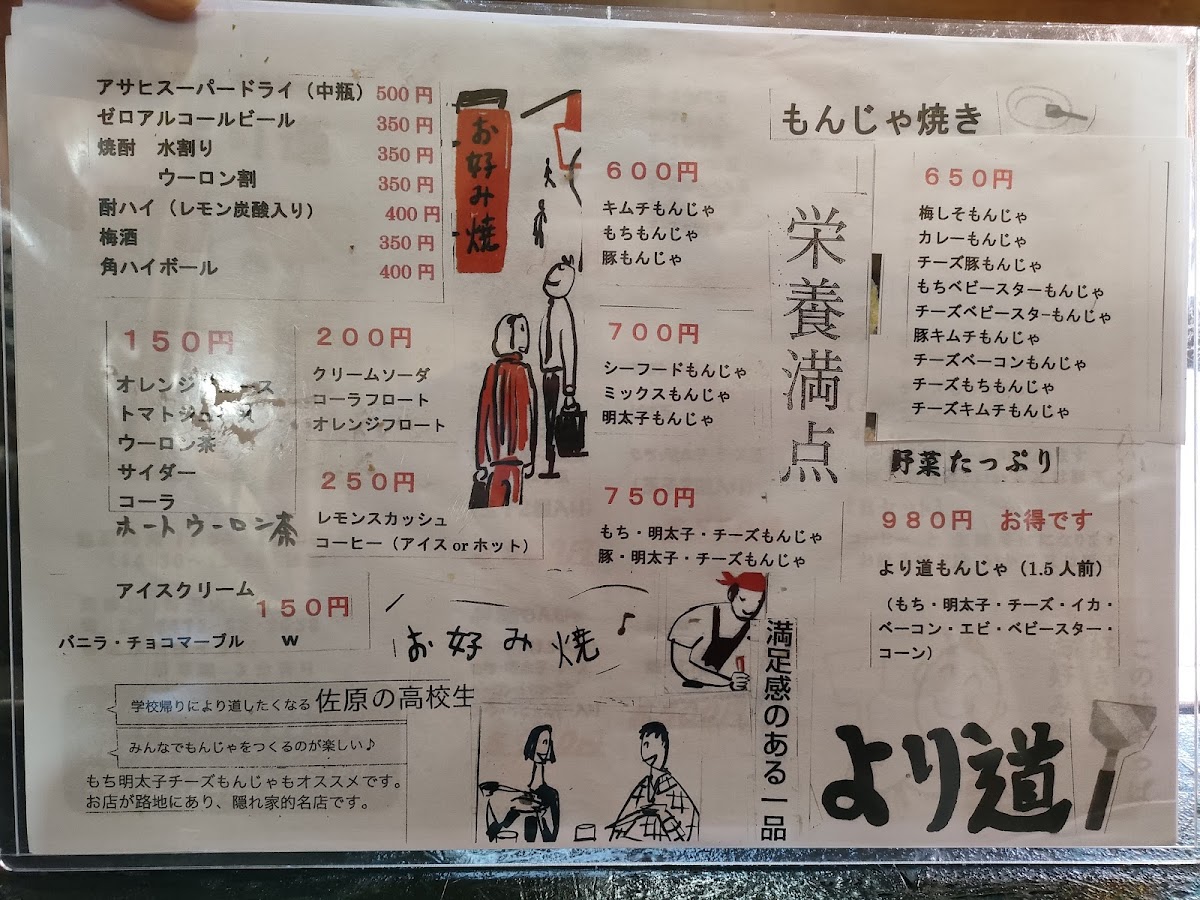 アサヒスーパードライ（中瓶）500円
ゼロアルコールビール 350円
焼酎　水割り 350円
ウーロン割 350円
酎ハイ（レモン炭酸入り） 400円
梅酒 350円
角ハイボール 400円
150円
オレンジ
トマト
ウーロン茶
サイダー
コーラ
ホートウーロン茶
200円
クリームソーダ
コーラフロート
オレンジフロート
250円
レモンスカッシュ
コーヒー（アイスorホット）
アイスクリーム
150円
バニラ・チョコマーブル　W
お好み焼
もんじゃ焼き
600円
キムチもんじゃ
もちもんじゃ
豚もんじゃ
700円
シーフードもんじゃ
ミックスもんじゃ
明太子もんじゃ
750円
もち・明太子・チーズもんじゃ
豚・明太子・チーズもんじゃ
栄養満点
650円
梅しそもんじゃ
カレーもんじゃ
チーズ豚もんじゃ
もちベビースターもんじゃ
チーズベビースターもんじゃ
豚キムチもんじゃ
チーズベーコンもんじゃ
チーズもちもんじゃ
チーズキムチもんじゃ
野菜たっぷり
980円　お得です
より道もんじゃ（1.5人前）
（もち・明太子・チーズ・イカ・
ベーコン・エビ・ベビースター・
コーン）
お好み焼
満足感のある一品
学校帰りにより道したくなる 佐原の高校生
みんなでもんじゃをつくるのが楽しい♪
もち明太子チーズもんじゃもオススメです。
お店が路地にあり、隠れ家的名店です。
より道